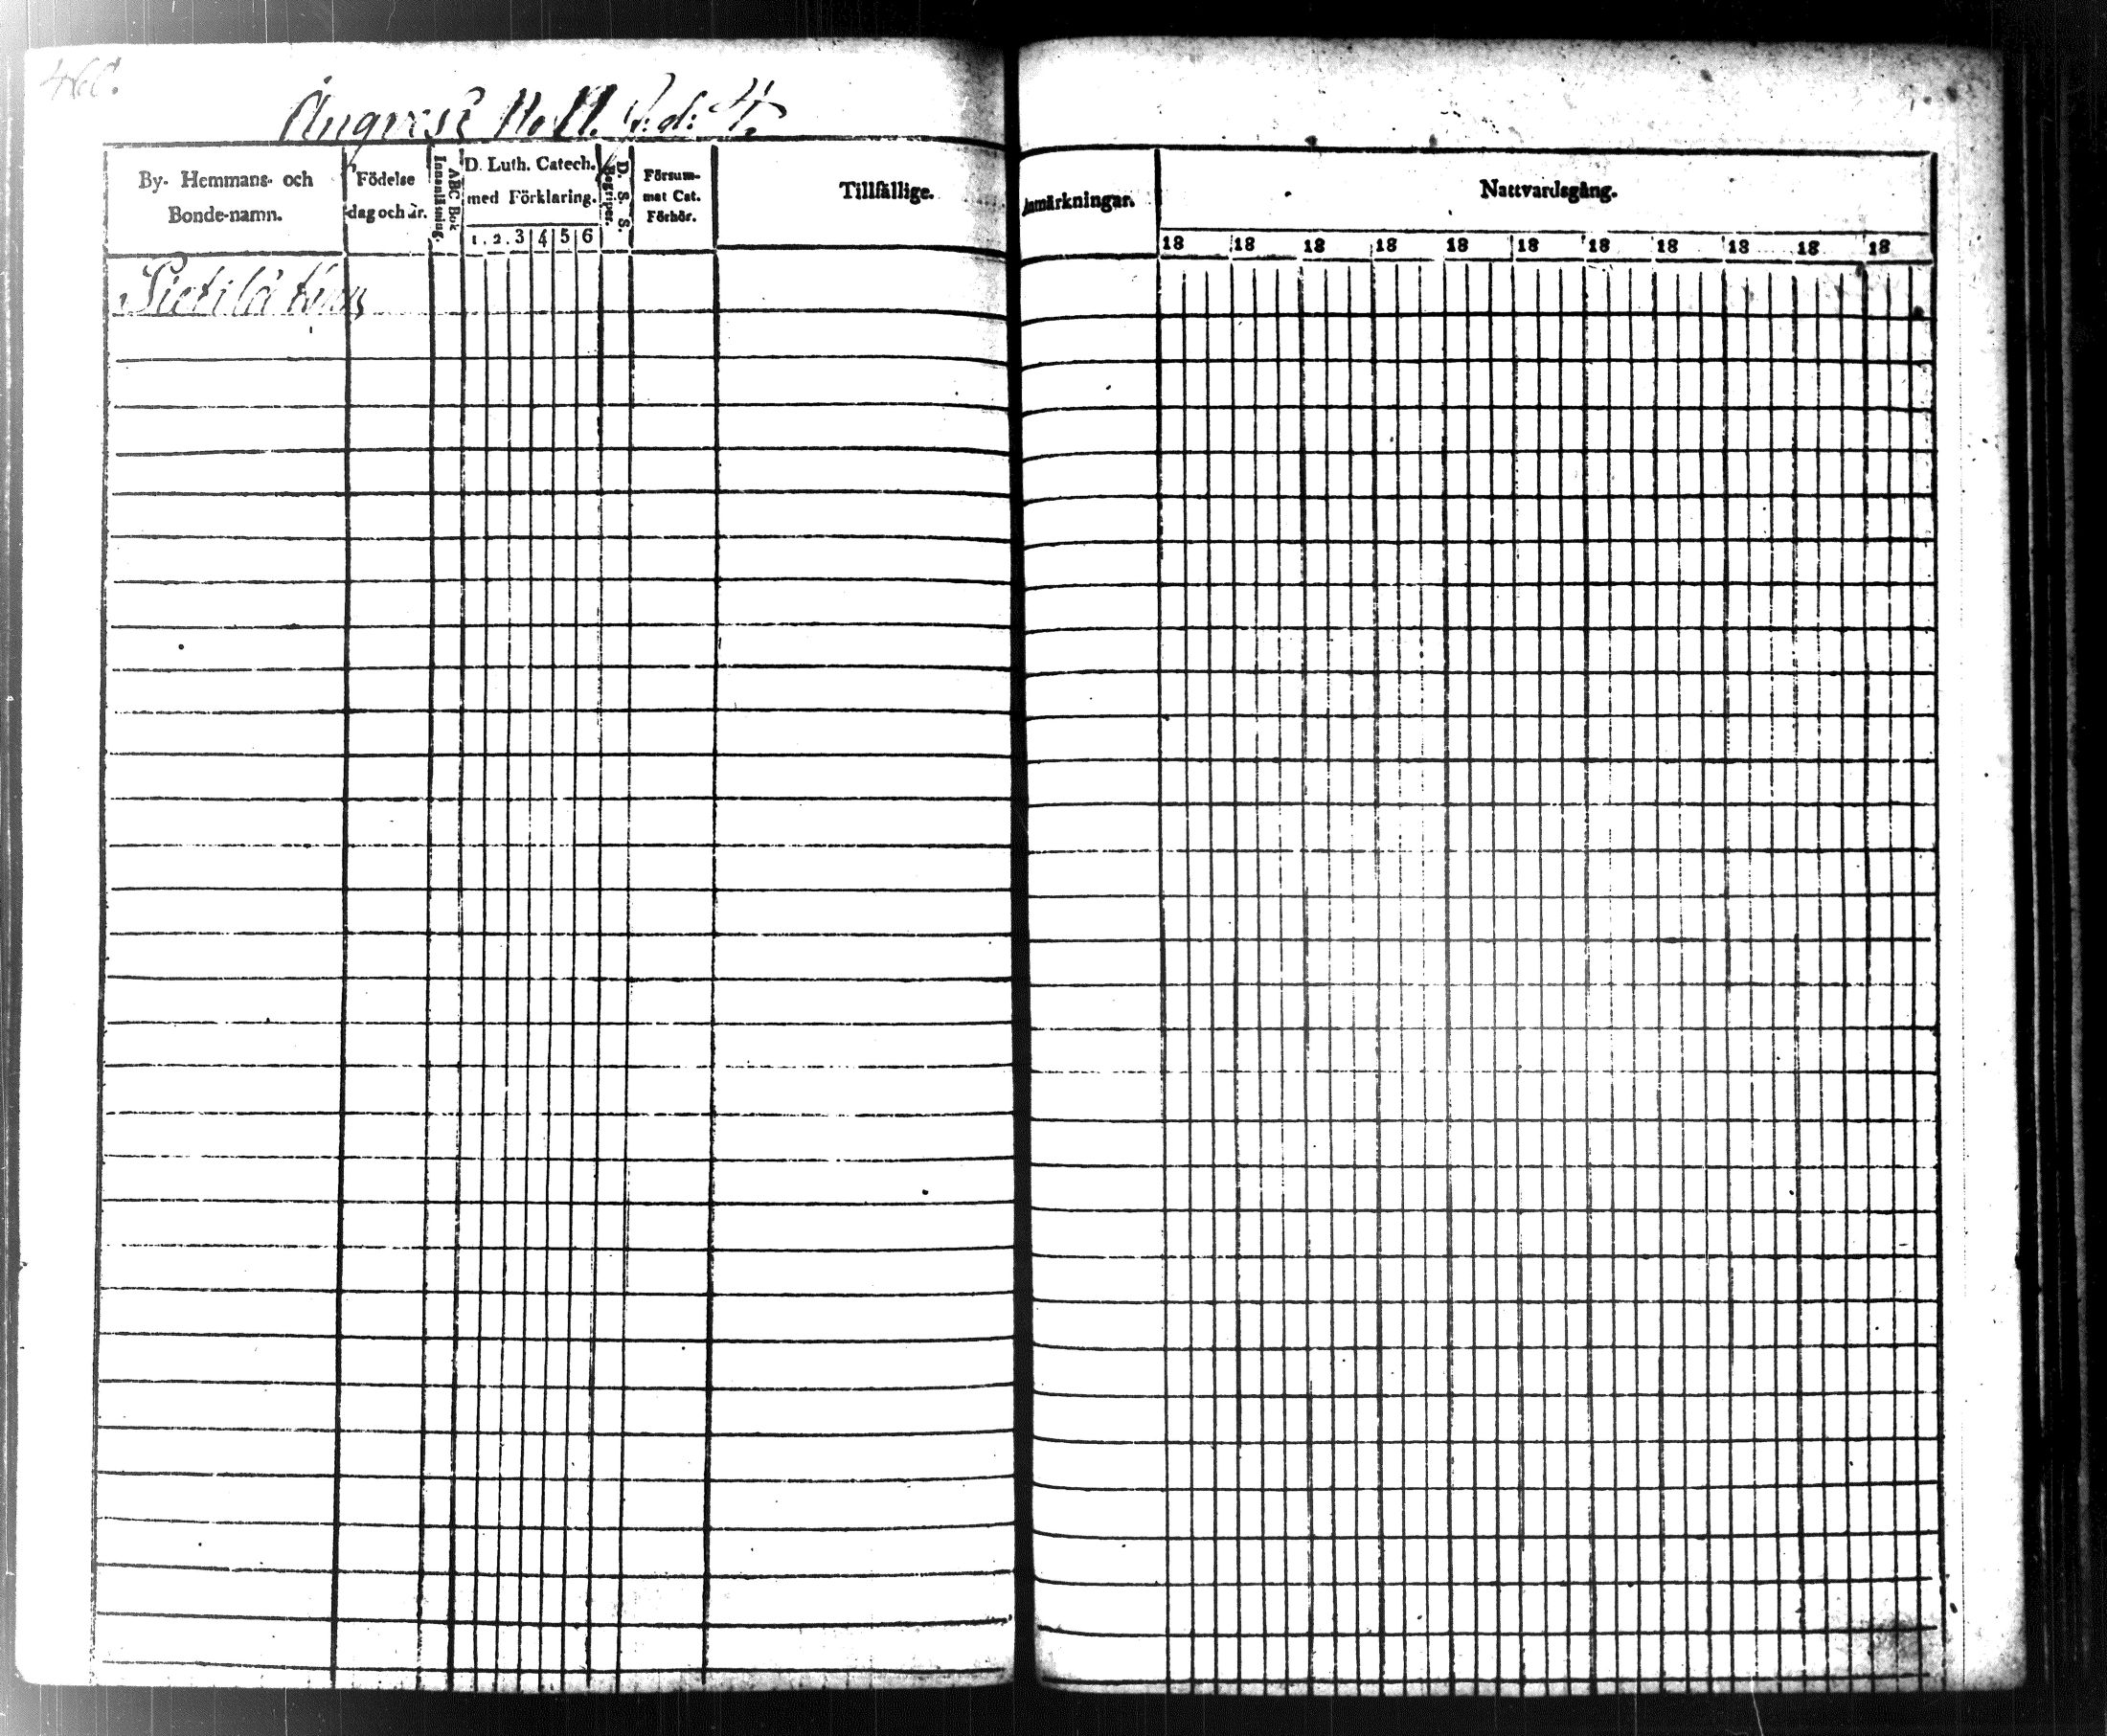 460.
Ängvesi No 11.
By- Hemmans- och
Bonde-namn.
Födelse
dag och år.
Innanläsning.
ABC Bok
D. Luth. Catech.
med Förklaring.
1. 2. 3 4 5 6
Begriper.
D. S. S.
Försum-
mat Cat.
Förhör.
Tillfällige.
Anmärkningar.
Nattvardsgång.
18 18 18 18 18 18 18 18 18 18 18
Pietilä